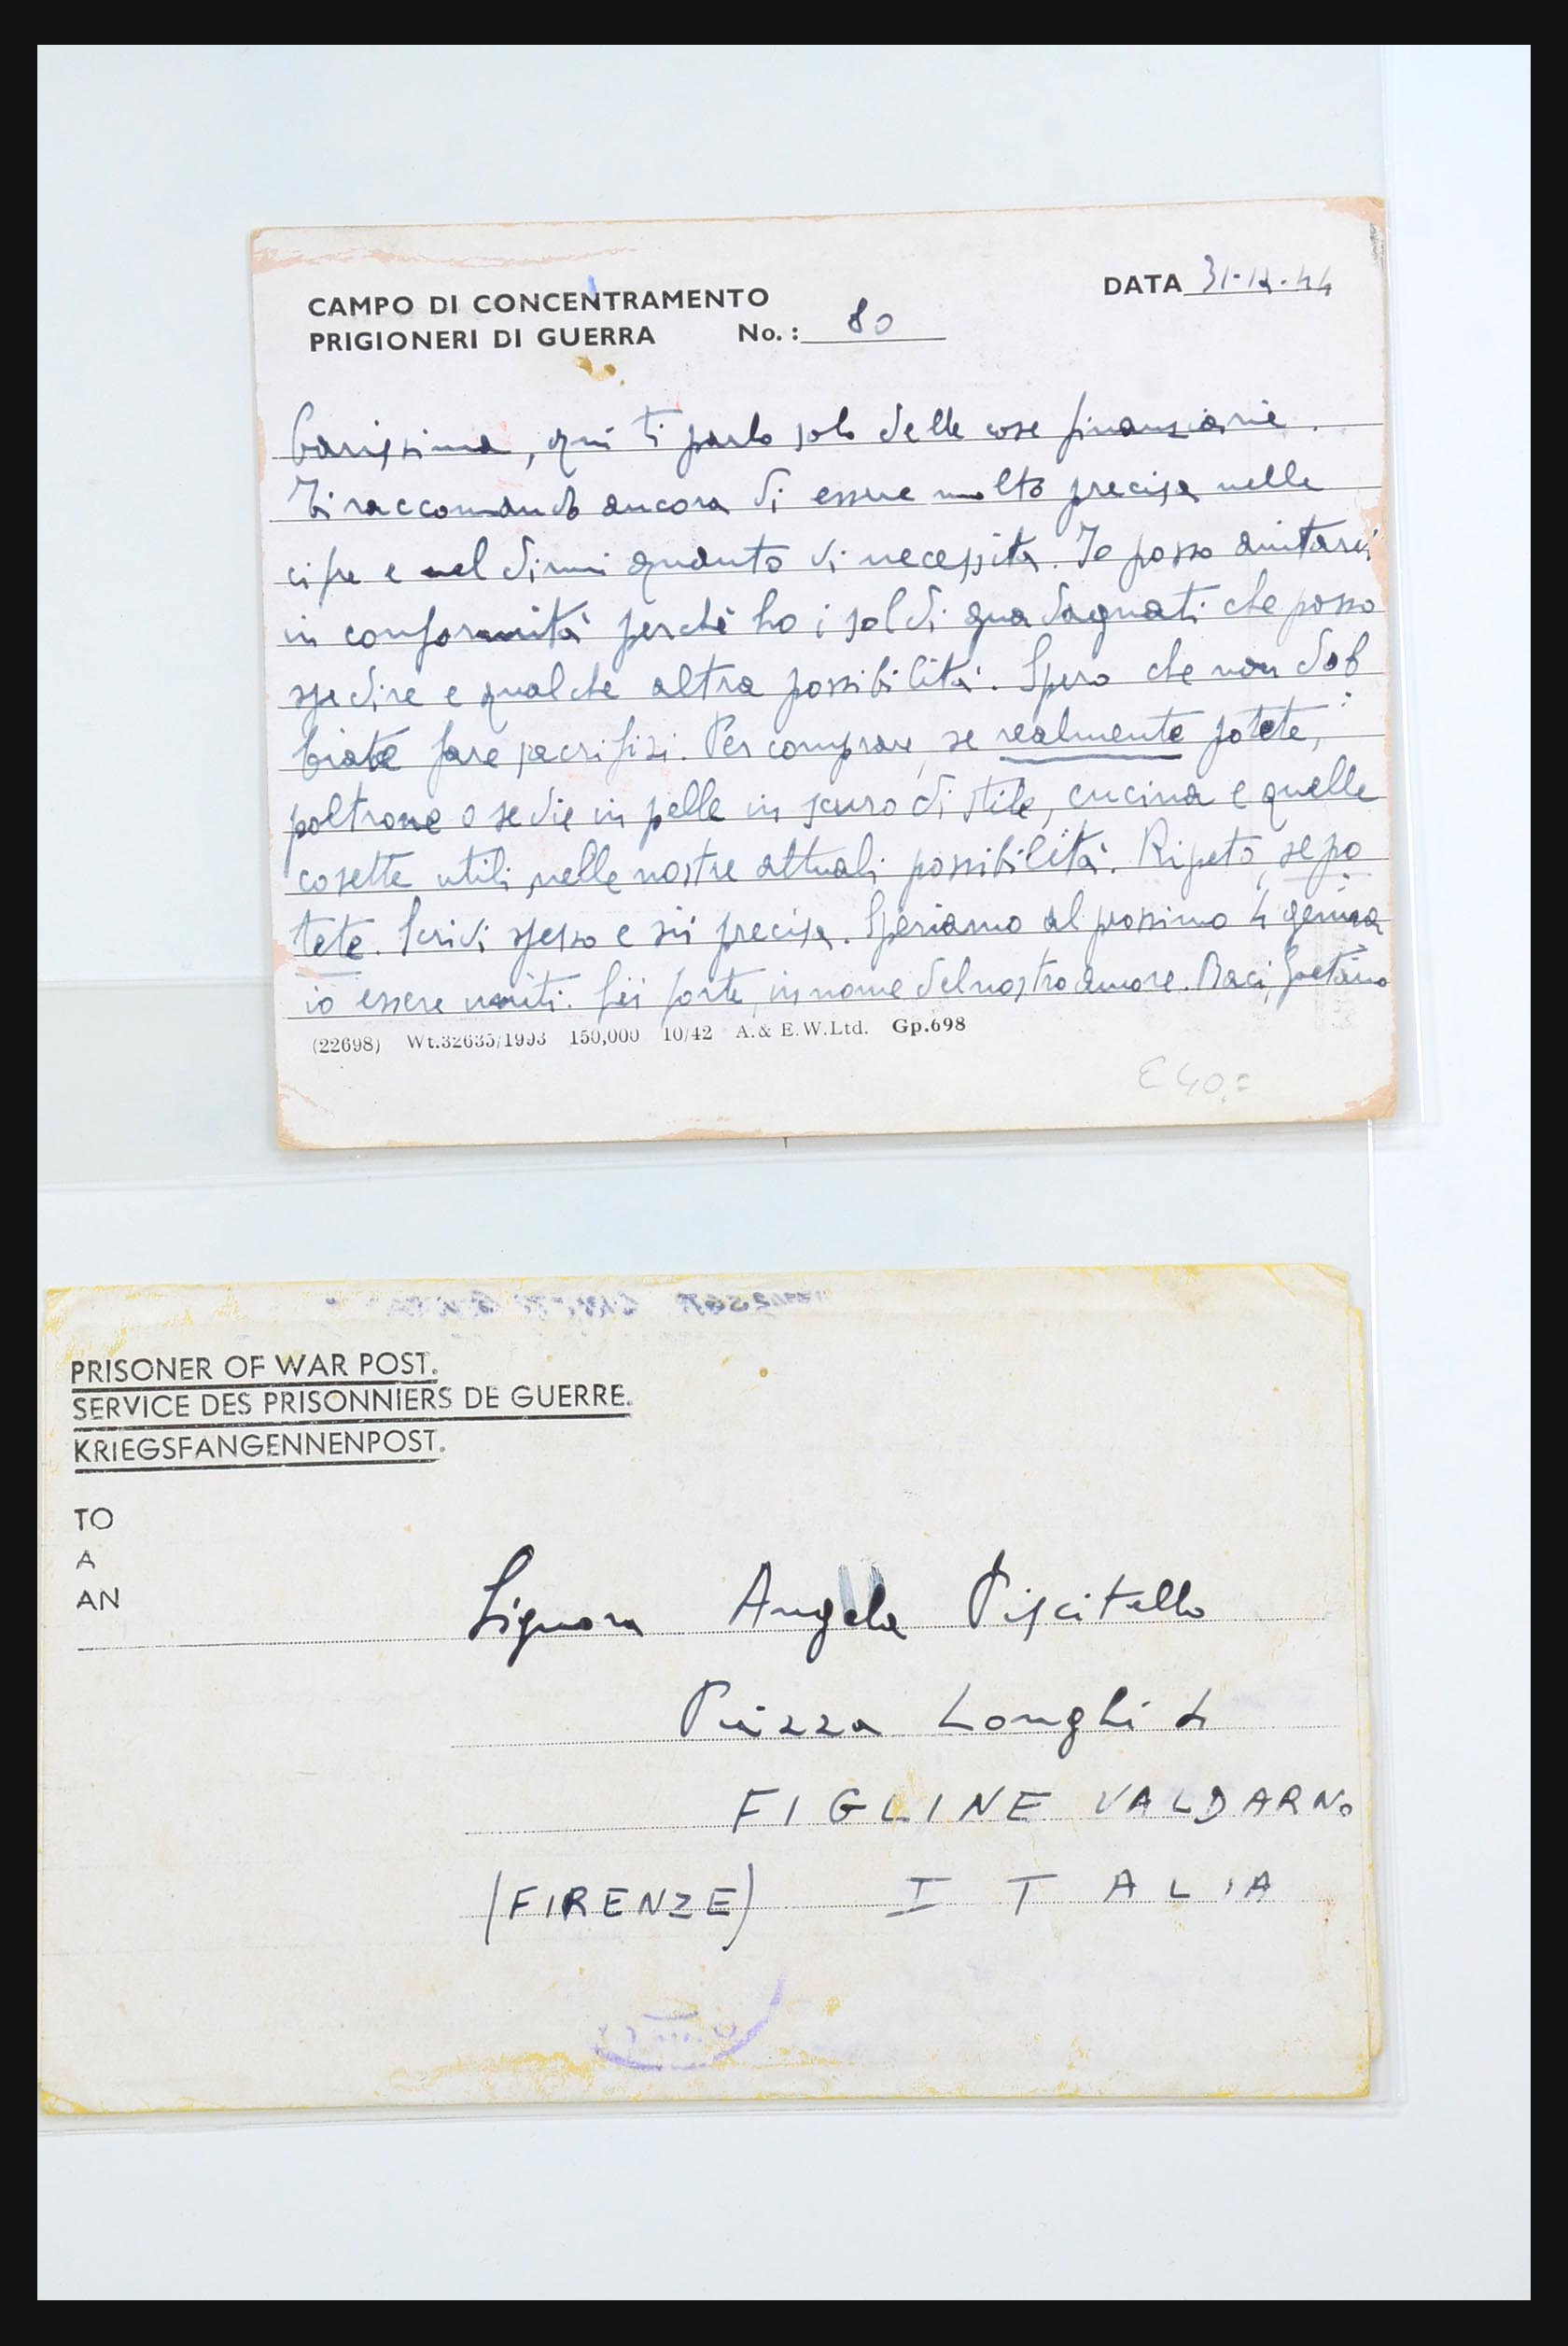 CAMPO DI CONCENTRAMENTO
PRIGIONERI DI GUERRA No. : 80
DATA 31-12-44
Carissima, qui ti parlo solo delle cose finanziarie.
Ti raccomando ancora di essere molto precisa nelle
cifre e nel dirmi quanto vi necessita. Io posso aiutarvi
in conformità perchè ho i soldi guadagnati che posso
spedire e qualche altra possibilità. Spero che non dob
biate fare sacrifizi. Per comprare, se realmente potete,
poltrone o sedie in pelle in scuro di stile, cucina e quelle
cosette utili, nelle nostre attuali possibilità. Ripeto, se po
tete. Scrivi spesso e sii precisa. Speriamo al prossimo 4 genna
io essere uniti. Sii forte, in nome del nostro amore. Baci, Gaetano
(22698) Wt.32635/1993 150,000 10/42 A.& E.W.Ltd. Gp.698
€ 40,=
PRISONER OF WAR POST.
SERVICE DES PRISONNIERS DE GUERRE.
KRIEGSFANGENNENPOST.
TO
A
AN
Signora Angela Piscitello
Piazza Longhi 4
FIGLINE VALDARNO
(FIRENZE) ITALIA